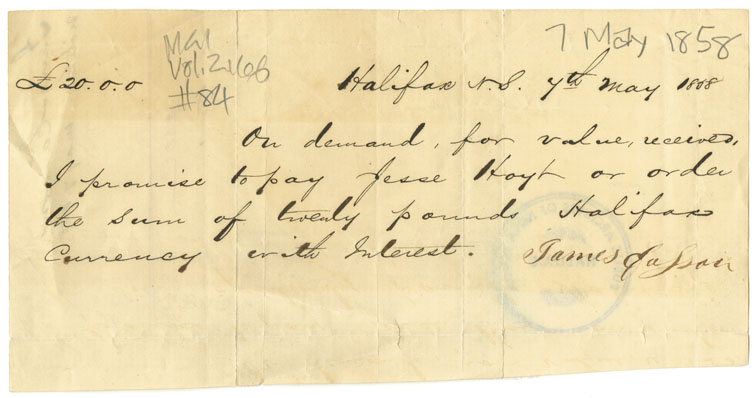 7 May 1858
MG1
Vol. 2466
#84
£20.0.0 Halifax N.S. 7th May 1858
On demand, for value, received,
I promise to pay Jesse Hoyt or order
the sum of twenty pounds Halifax
Currency with Interest. James